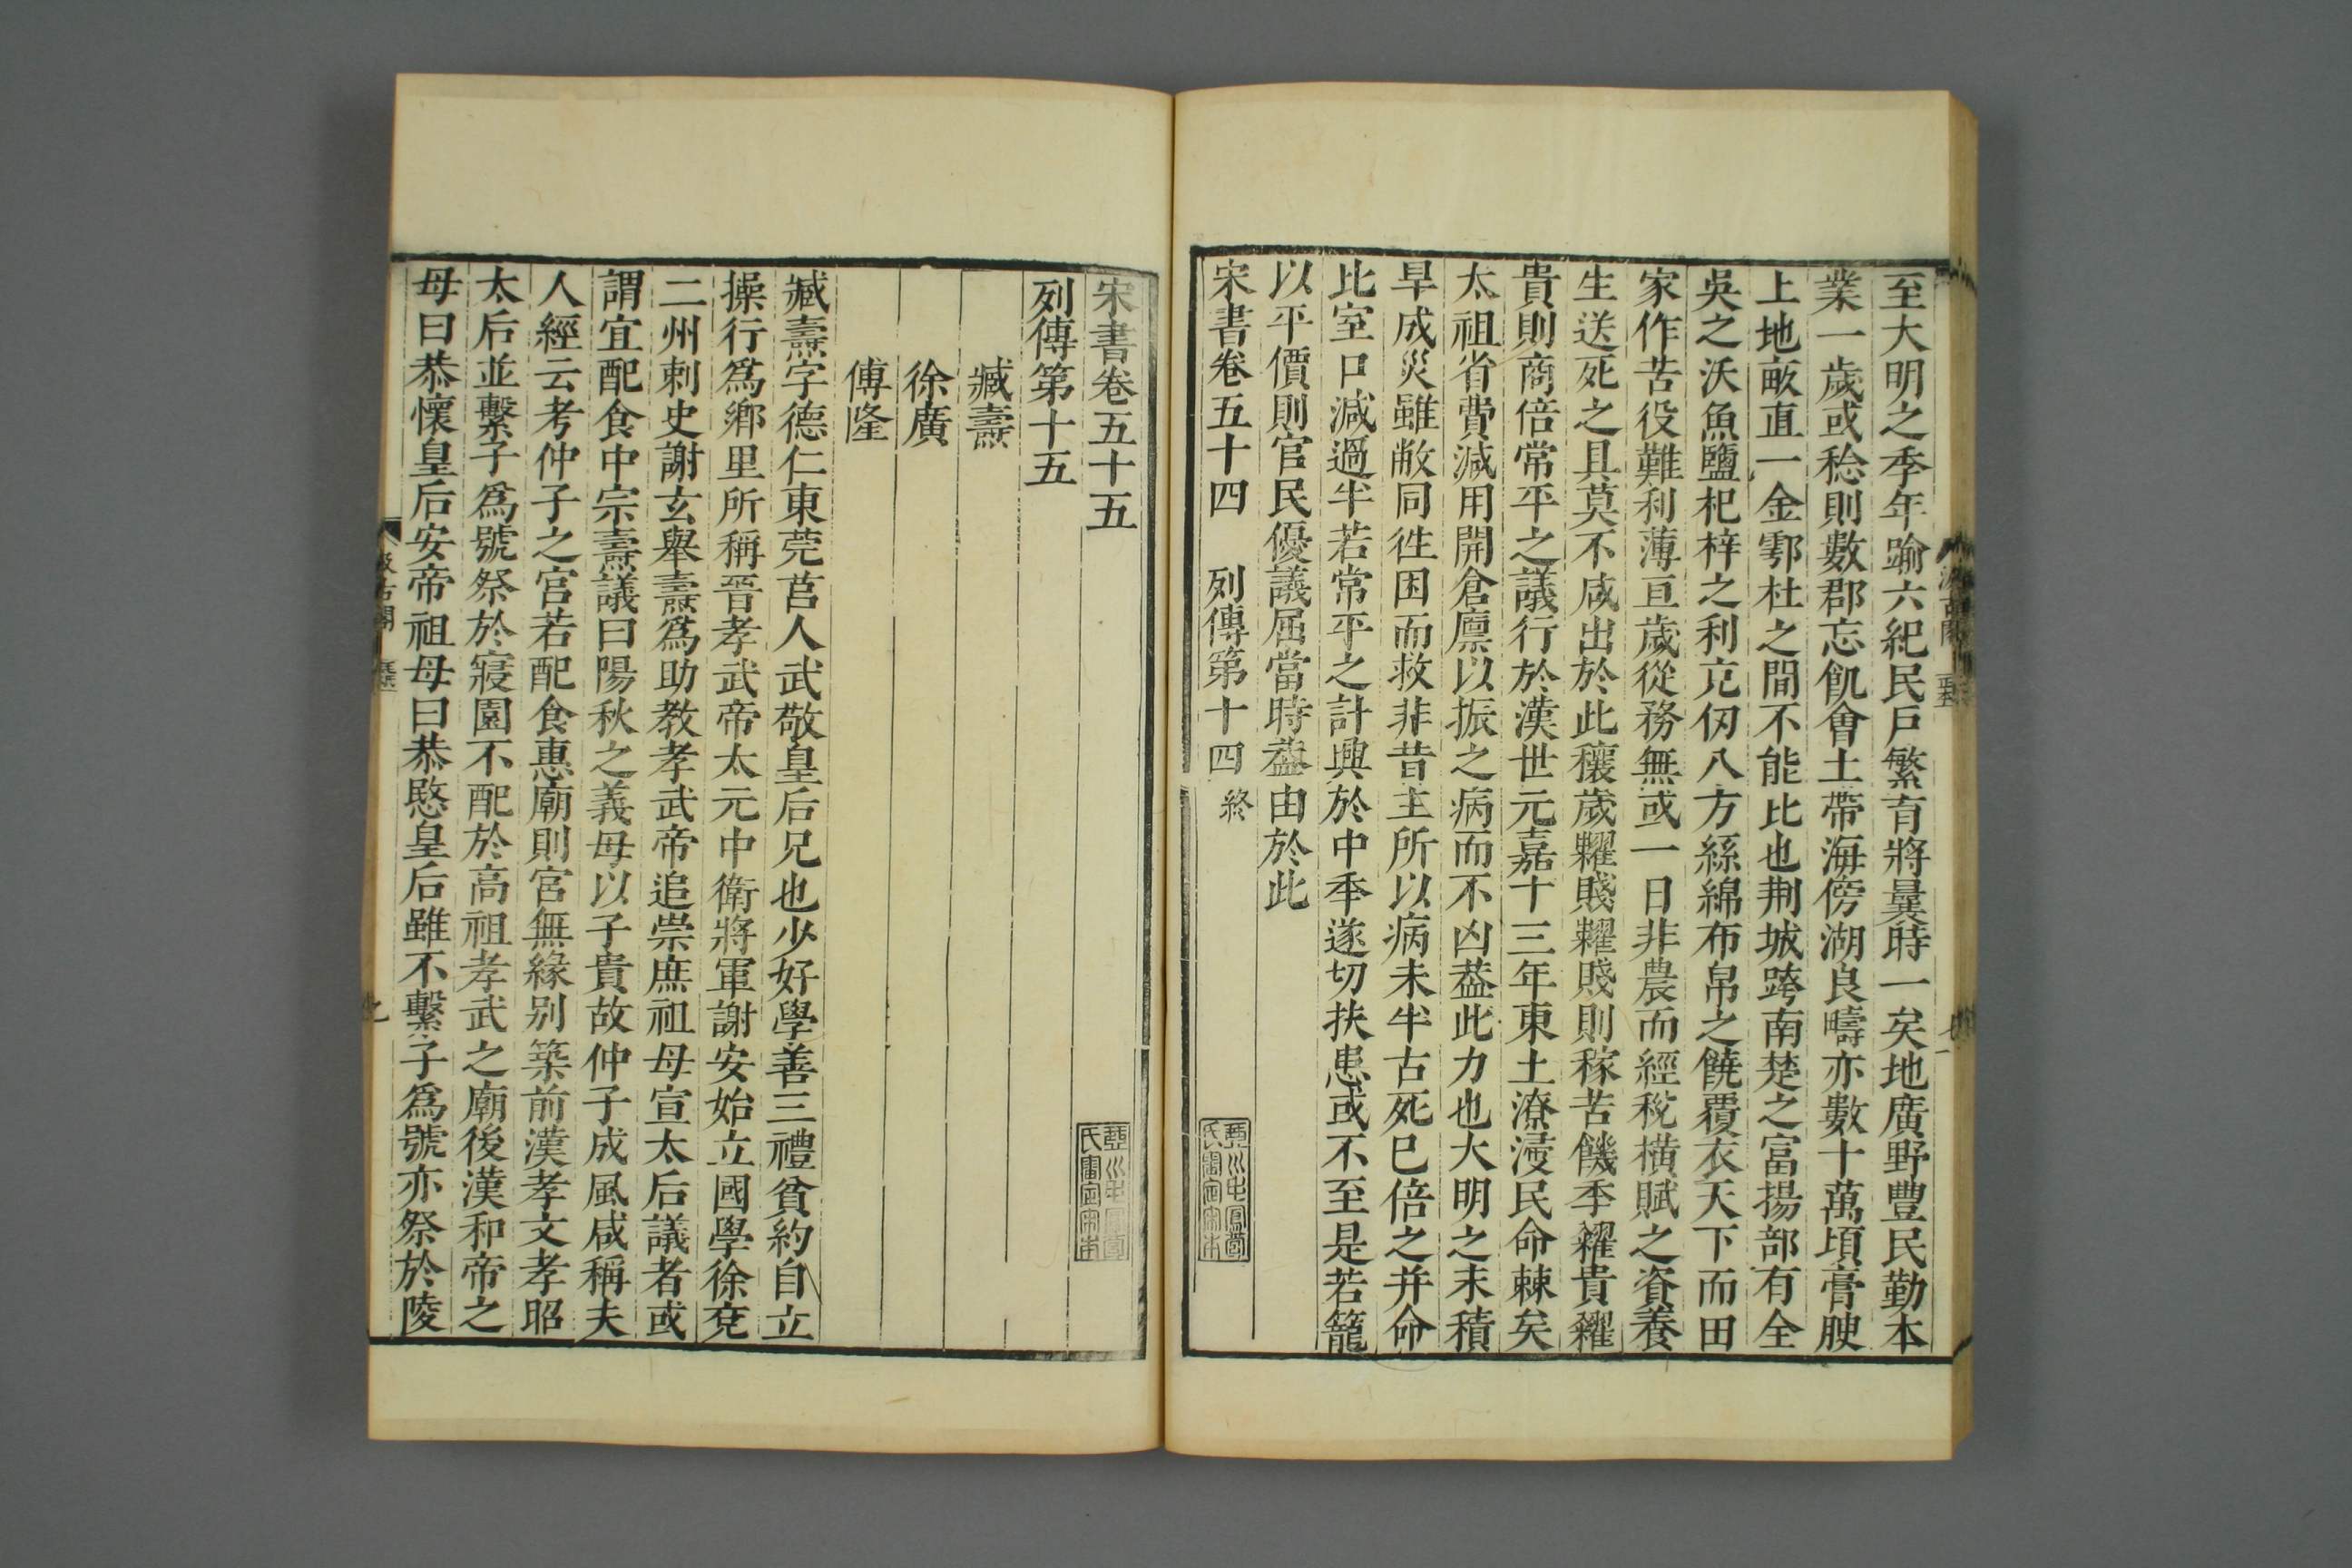 至大明之季年踰六紀民戸繁育將曩時一矣地廣野豐民勤本
業一歲或稔則數郡忘飢會土帶海傍湖良疇亦數十萬頃膏腴
上地畝直一金鄠杜之間不能比也荆城跨南楚之富揚部有全
吳之沃魚鹽杞梓之利充仞八方絲綿布帛之饒覆衣天下而田
家作苦役難利薄亘歲從務無或一日非農而經稅橫賦之資養
生送死之具莫不咸出於此穰歲糶賤糶賤則稼苦饑季糴貴糴
貴則商倍常平之議行於漢世元嘉十三年東土潦浸民命棘矣
太祖省費減用開倉廪以振之病而不凶葢此力也大明之末積
旱成災雖敝同徃困而救非昔主所以病未半古死巳倍之并命
比室口減過半若常平之計興於中季遂切扶患或不至是若籠
以平價則官民優議屈當時葢由於此
宋書卷五十四 列傳第十四 終
宋書卷五十五
列傳第十五
臧燾
徐廣
傅隆
臧燾字德仁東莞莒人武敬皇后兄也少好學善三禮貧約自立
操行爲鄉里所稱晉孝武帝太元中衛將軍謝安始立國學徐兗
二州刺史謝玄舉燾爲助教孝武帝追崇庶祖母宣太后議者或
謂宜配食中宗燾議曰陽秋之義母以子貴故仲子成風咸稱夫
人經云考仲子之宮若配食惠廟則宮無緣别築前漢孝文孝昭
太后並繫子爲號祭於寢園不配於高祖孝武之廟後漢和帝之
母曰恭懷皇后安帝祖母曰恭愍皇后雖不繫子爲號亦祭於陵